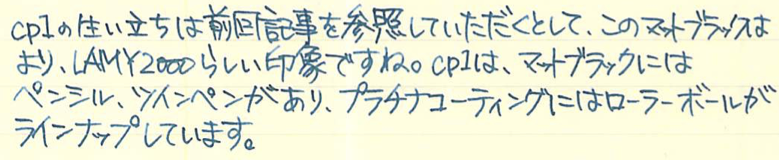 cp1の生い立ちは前回記事を参照していただくとして、このマットブラックは
より、LAMY2000らしい印象ですね。cp1は、マットブラックには
ペンシル、ツインペンがあり、プラチナコーティングにはローラーボールが
ラインナップしています。